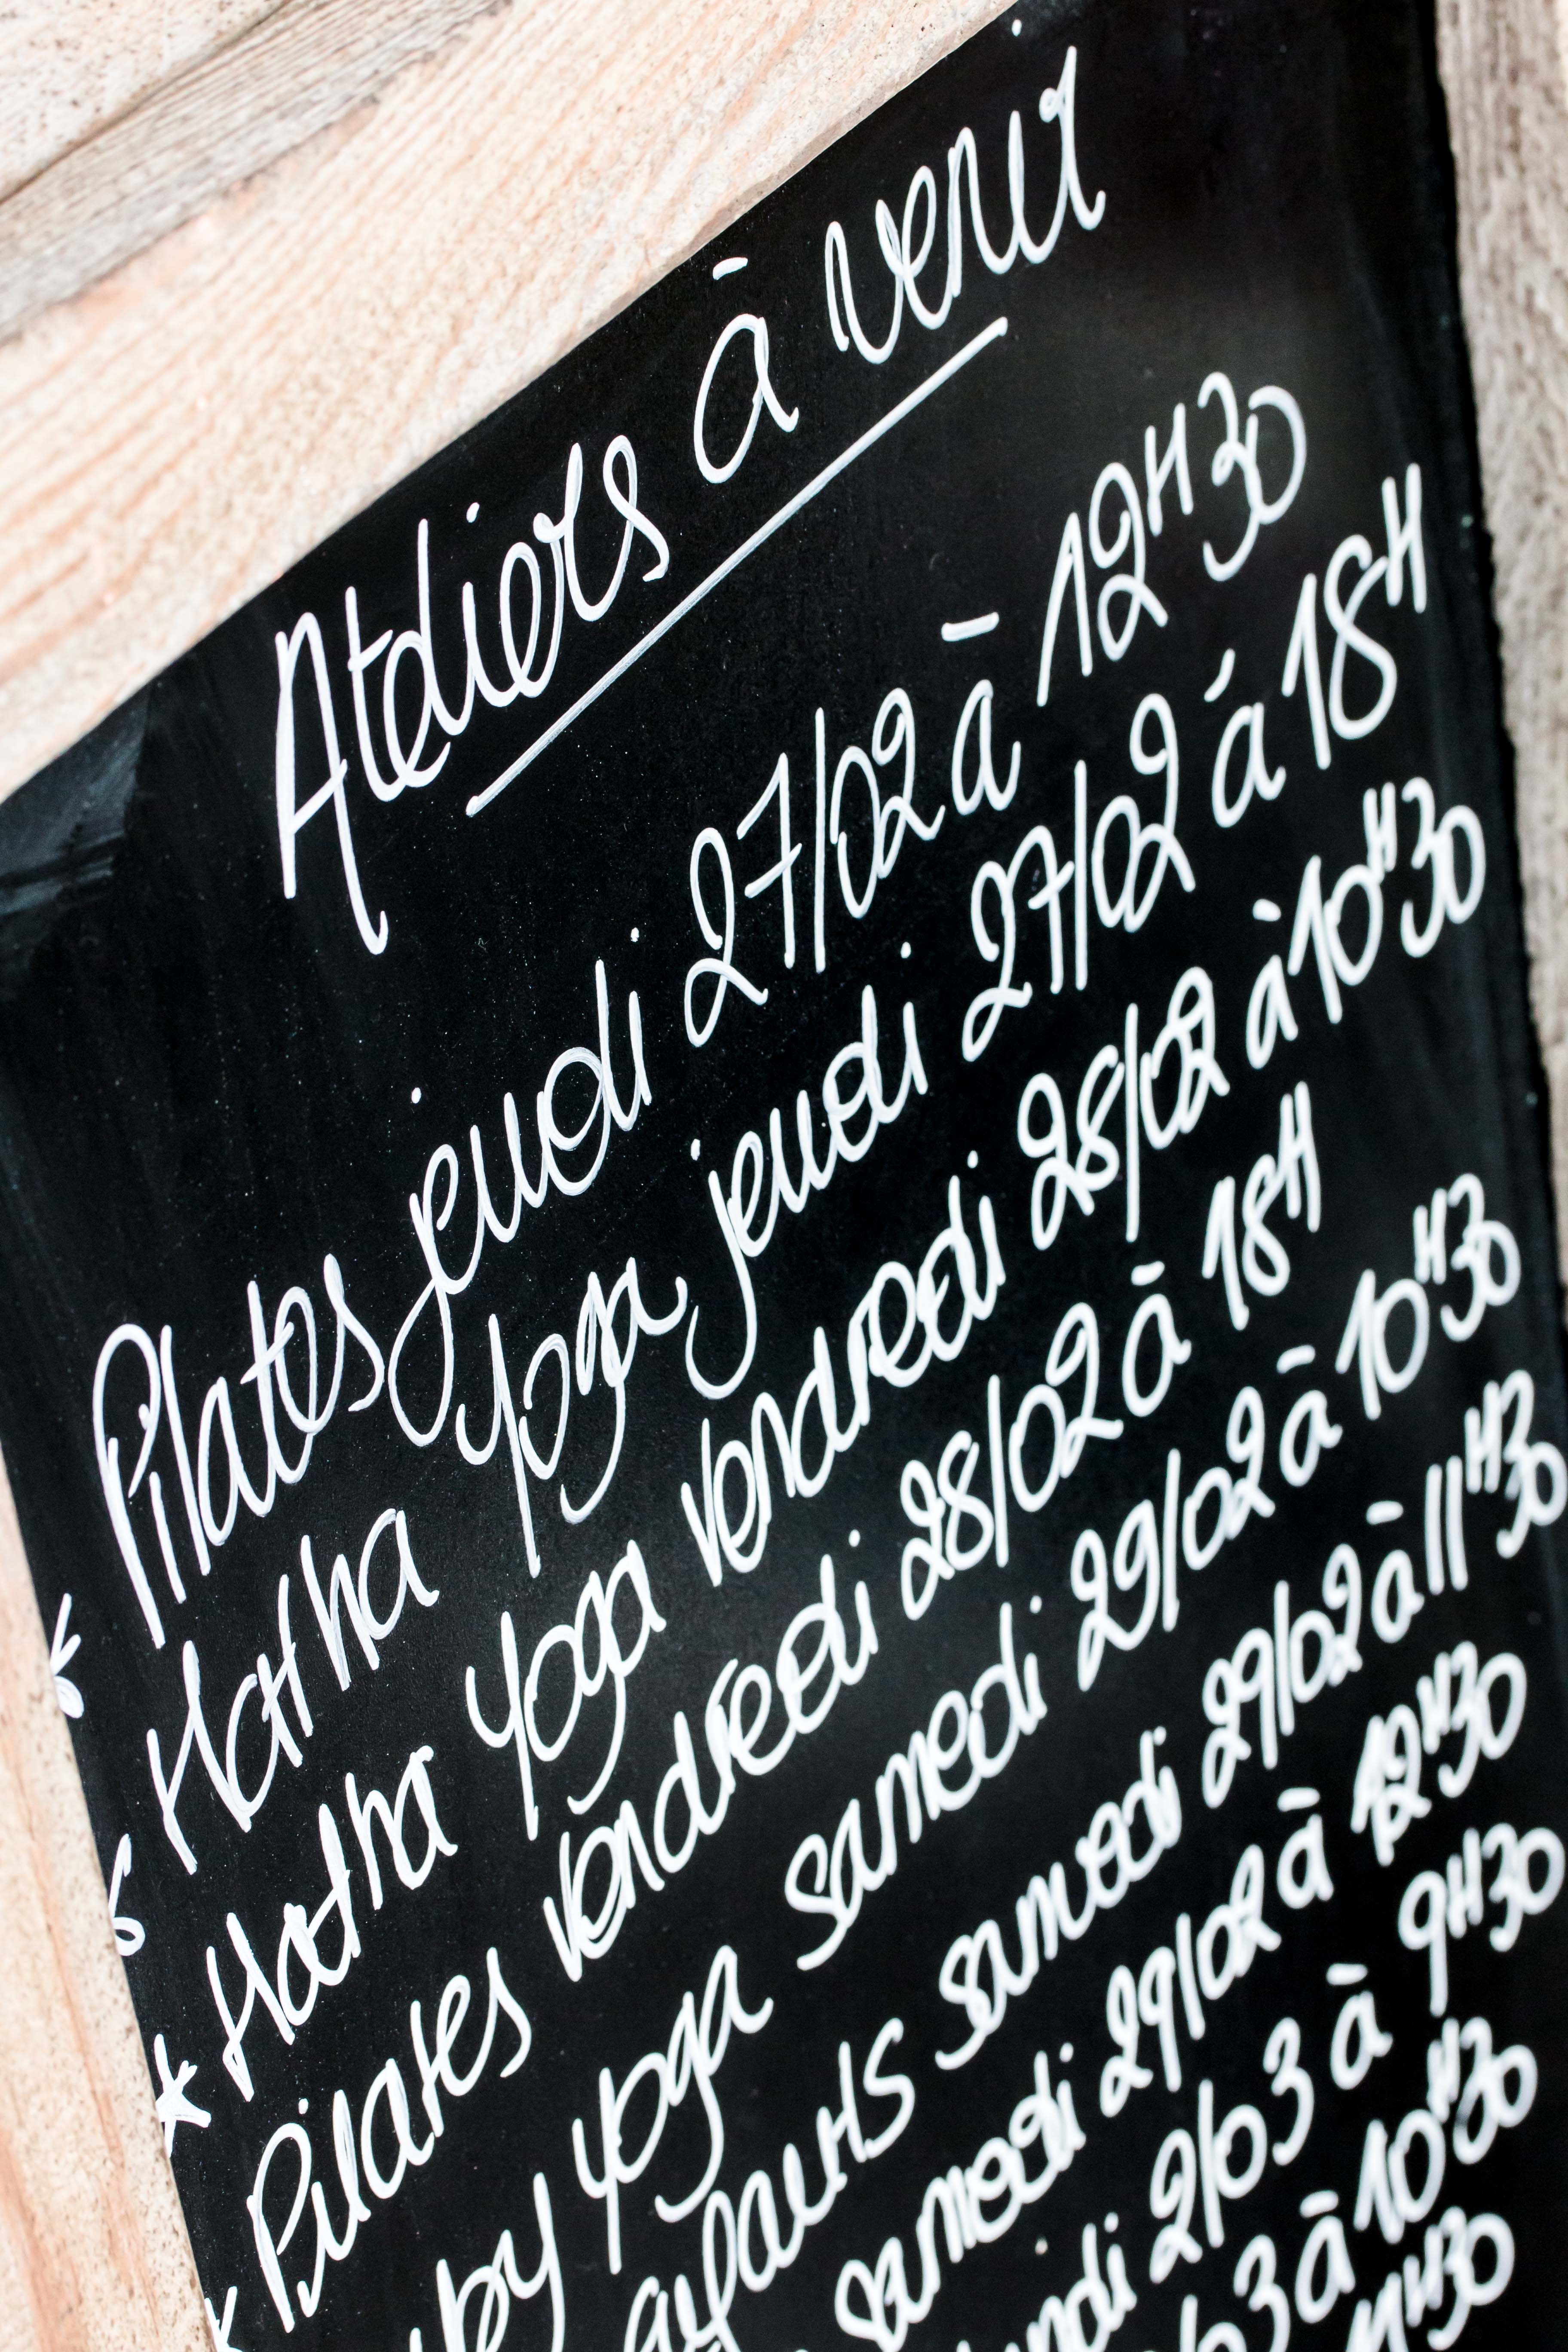 Ateliers à venir
* Pilates jeudi 27/02 à 12H30
* Hatha yoga jeudi 27/02 à 18H
* Hatha yoga vendredi 28/02 à 10H30
* Pilates vendredi 28/02 à 18H
yoga samedi 29/02 à 10H30
samedi 29/02 à 11H30
samedi 29/02 à 12H30
2/03 à 9H30
3 à 10H30
11H30